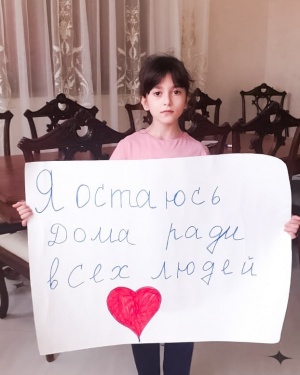 Я остаюсь
дома ради
всех людей